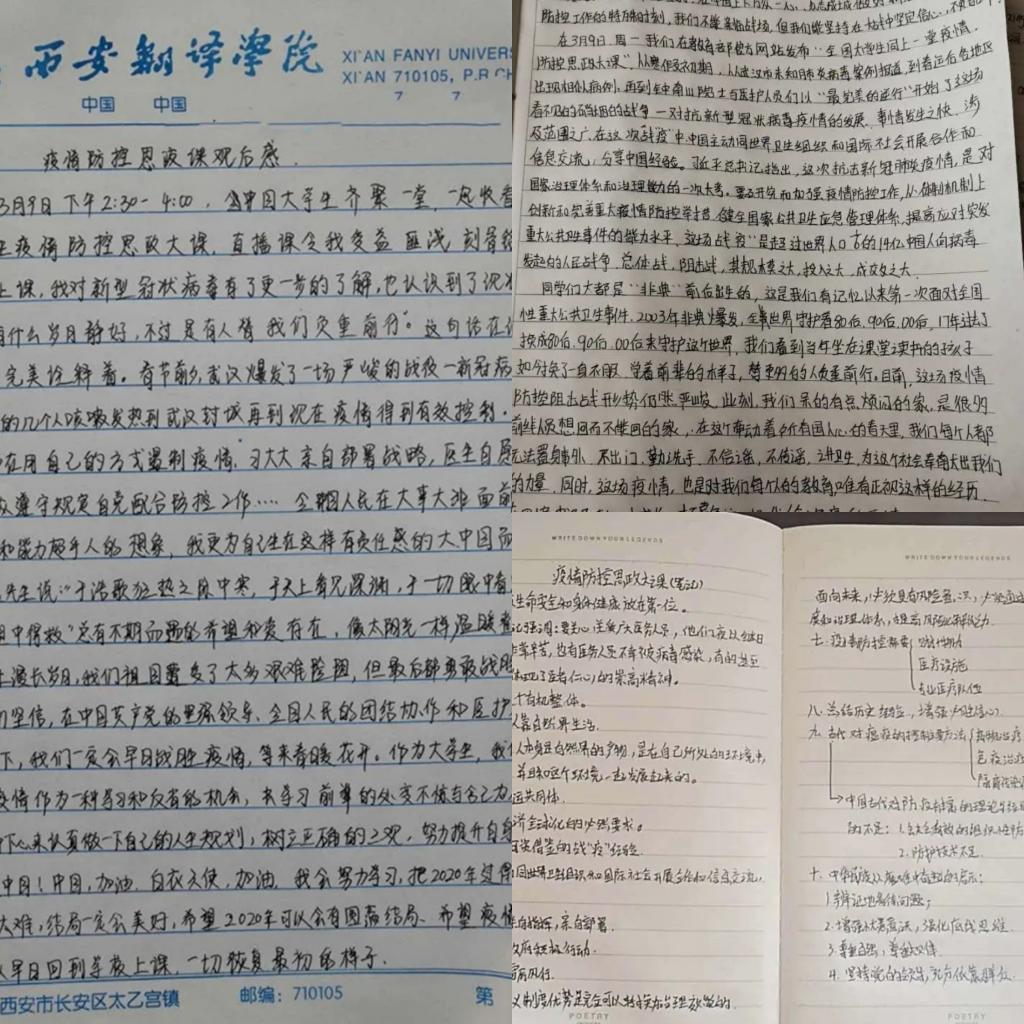 西安翻译学院
XI'AN FANYI UNIVERS
XI'AN 710105, P.R.CH
中国 中国
7 7
疫情防控思政课观后感.
3月9日下午2:30-4:00,全中国大学生齐聚一堂,一起收看
疫情防控思政大课,直播课令我受益匪浅,刻骨铭
上课,我对新型冠状病毒有了更一步的了解,也认识到了
有什么岁月静好,不过是有人替我们负重前行"。这句话在
完美诠释着。春节前,武汉爆发了一场严峻的战役—新冠病
的几个人咳嗽发热到武汉封城再到现在疫情得到有效控制.
在用自己的方式遏制疫情.习大大亲自部署战略,医生自愿
遵守规定自觉配合防控工作……全国人民在大事大非面前
和能力超乎人的想象,我更为自己生在这样有责任感的大中国而
先生说:"于浩歌狂热之际中寒,于天上看见深渊,于一切眼中看
中得救"总有不期而遇的希望和爱存在,像太阳光一样温暖着
漫长岁月,我们祖国遭受了太多艰难险阻,但最后都勇敢战胜
坚信,在中国共产党的坚强领导、全国人民的团结协作和医护
下,我们一定会早日战胜疫情,等来春暖花开。作为大学生,我们
疫情作为一种学习和反省的机会,去学习前辈的处变不惊与舍己为
下心来认真做一下自己的人生规划,树立正确的三观,努力提升自身
中国!中国,加油.白衣天使,加油.我会努力学习,把2020年过得
大难,结局一定会美好,希望2020年可以会有圆满结局.希望疫情
早日回到学校上课.一切恢复最初的样子.
西安市长安区太乙宫镇 邮编:710105 第
防控工作的特殊时刻,我们不能亲临战场,但我们能坚持在
在3月9日周一我们在教育部官方网站发布"全国大学生同上一堂疫情
防控思政大课",从寒假及初期,从武汉市未知肺炎病毒案例报道,到看近后各地区
出现相似病例,再到钟南山院士与医护人员们以"最完美的逆行"开始了这场
看不见的硝烟的战争—对抗新型冠状病毒疫情的发展.事情发生之快、涉
及范围之广,在这次战"疫"中中国主动同世界卫生组织和国际社会开展合作和
信息交流,分享中国经验。习近平总书记指出,这次抗击新冠肺炎疫情,是对
国家治理体系和治理能力的一次大考,要研究和加强疫情防控工作,从体制机制上
创新和完善重大疫情防控举措,健全国家公共卫生应急管理体系,提高应对突发
重大公共卫生事件的能力水平,这场战"疫"是超过世界人口的14亿中国人向病毒
发起的人民战争、总体战、阻击战,其规模之大,投入之大,成效之大.
同学们大都是"非典"前后出生的,这是我们有记忆以来第一次面对全国
性重大公共卫生事件.2003年非典爆发,全世界守护着80后、90后、00后,17年过去了
换成80后、90后、00后来守护这个世界,我们看到当年坐在课堂读书的孩子
如今换了一身衣服,学着前辈的样子,替更多的人负重前行。目前,这场疫情
防控阻击战形势仍很严峻,此刻,我们呆的有点烦闷的家,是很多
前线人员想回而不能回的家,在这牵动着所有国人心的春天里,我们每个人都
无法置身事外,不出门、勤洗手、不信谣、不传谣、讲卫生,为这个社会奉献出我们
的力量.同时,这场疫情,也是对我们每个人的教育,唯有正视这样的经历
WRITE DOWN YOUR LEGENDS
疫情防控思政大课(笔记)
生命安全和身体健康放在第一位。
记强调:要关心、关爱广大医务人员,他们夜以继日
非常辛苦,也有医务人员不幸被病毒感染,有的甚至
体现了医者仁心的崇高精神。
有机整体。
人靠自然界生活.
人本身是自然界的产物,是在自己所处的环境中,
并且和这个环境一起发展起来的。
运共同体.
济全球化的必然要求。
可资借鉴的战"疫"经验.
同世界卫生组织和国际社会开展合作和信息交流.
自指挥,亲自部署.
政府积极行动.
义制度优势是完全可以转换为治理效能的.
POETRY
WRITE DOWN YOUR LEGENDS
面向未来,必须具有风险意识,
度和治理体系,提高
七.疫情防控需要
医疗设施
专业医疗队伍
八.总结历史经验,增强必胜信心.
九.古代对瘟疫的控制主要方法
免疫治疗
隔离
→中国古代对防疫
的不足:1.
2.防护技术不足.
十.中华民族从磨难中奋起的启示:
1.辨证地看待问题;
2.增强忧患意识,强化底线思维
3.尊重自然,尊重规律.
4.坚持党的领导,紧紧依靠群众.
POETRY